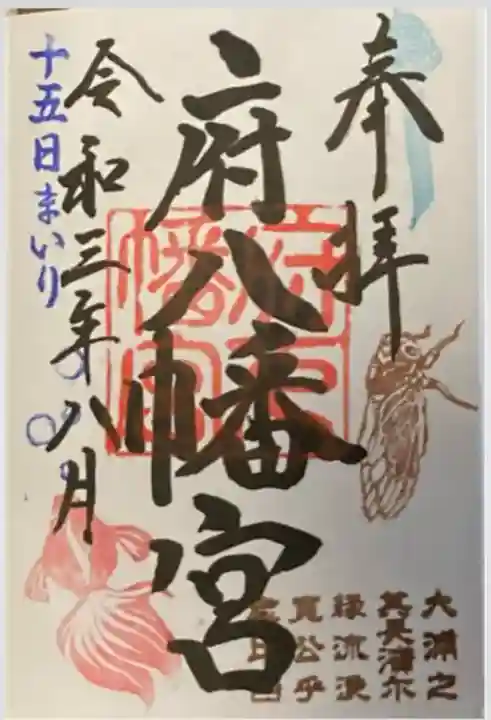 奉拝
府八幡宮
令和三年八月
十五日まいり
府八
幡宮
大浦之
其長濱尓
緑流浪
寛公乎